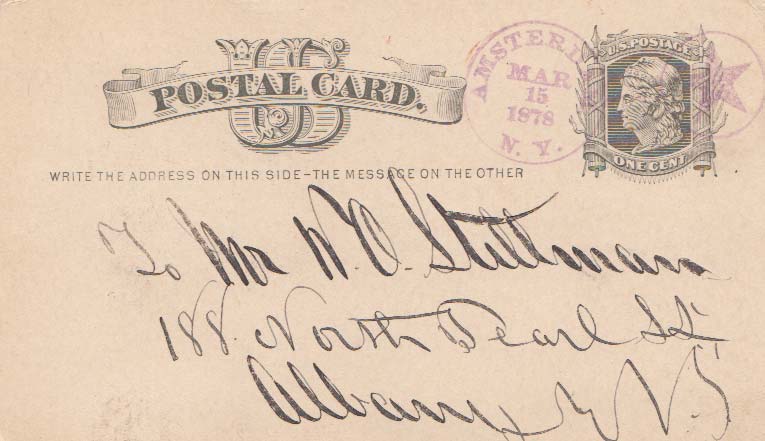 US
POSTAL CARD.
AMSTERD
MAR
15
1878
N. Y.
U.S. POSTAGE
ONE CENT
WRITE THE ADDRESS ON THIS SIDE–THE MESSAGE ON THE OTHER
To Mr W. O. Stillman
188. North Pearl St
Albany N Y